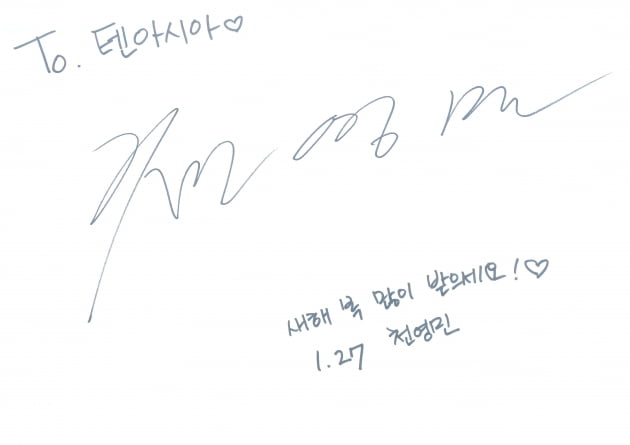 To. 텐아시아♡
새해 복 많이 받으세요!♡
1.27 천영민